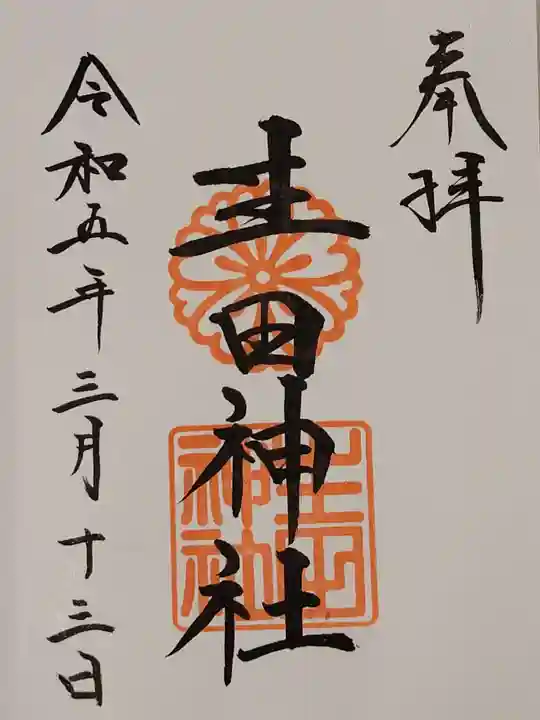 奉拝
生田神社
令和五年三月十三日